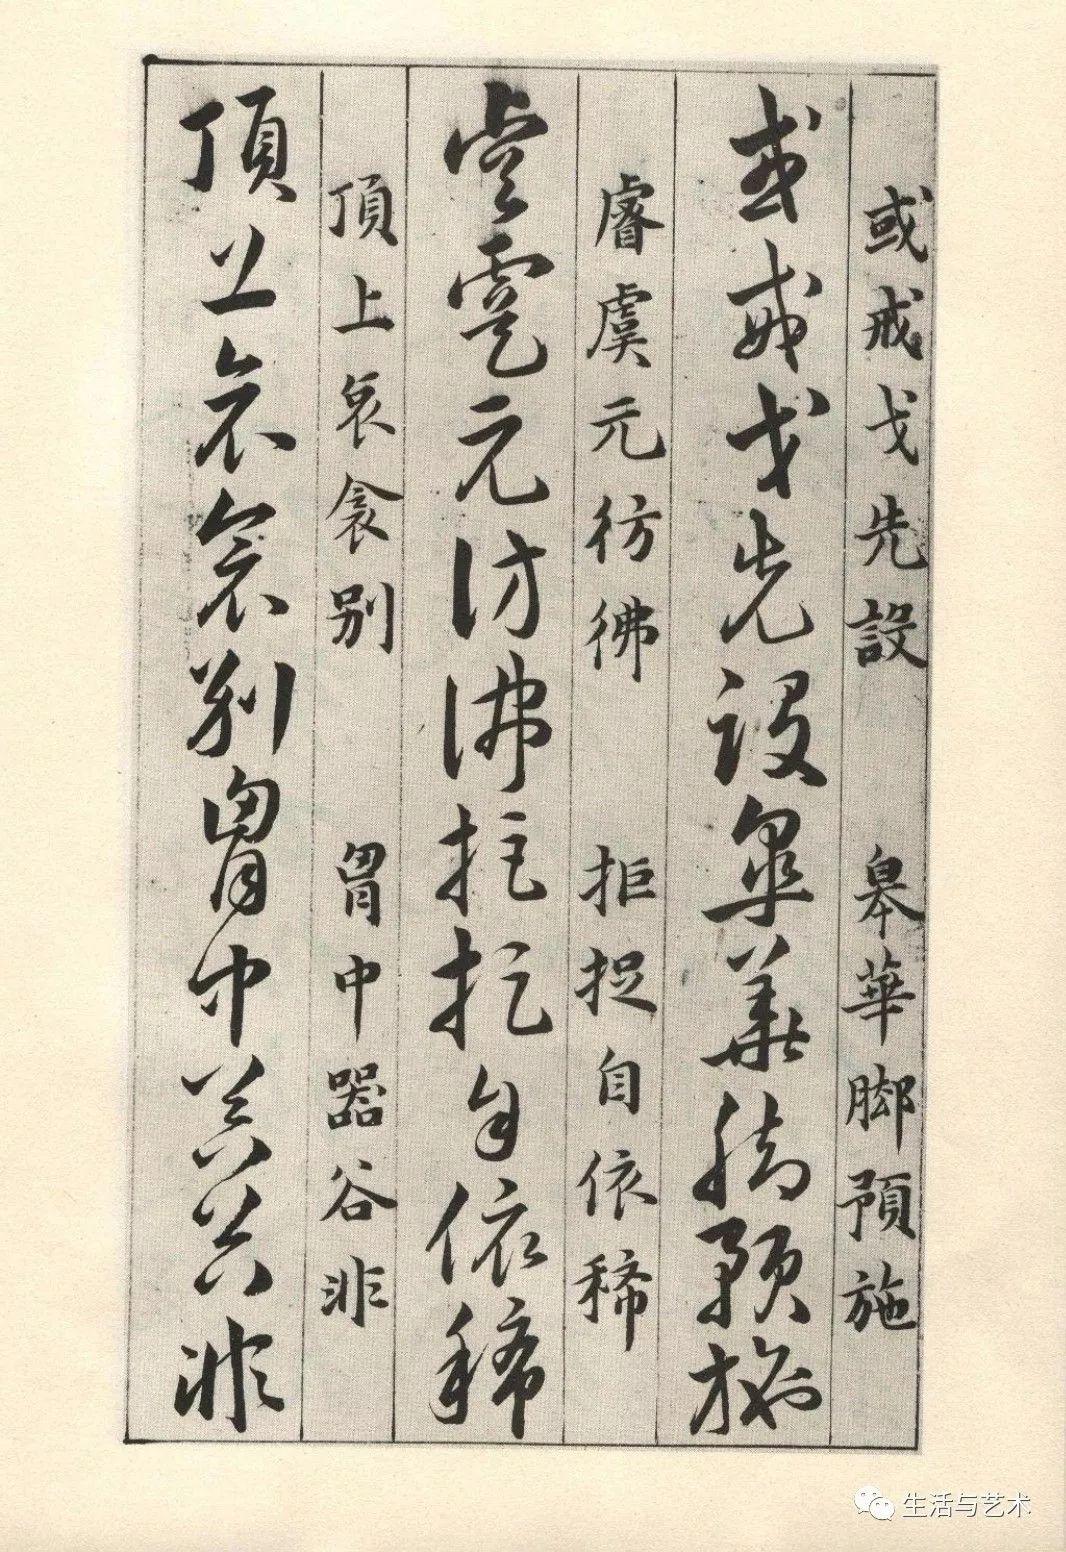 或戒戈先設 皋華脚預施
或戒戈先設皋華脚預施
睿虞元彷彿 拒捉自依稀
睿虞元彷彿拒捉自依稀
頂上哀衾别 胷中器谷非
頂上哀衾别胷中器谷非
生活与艺术